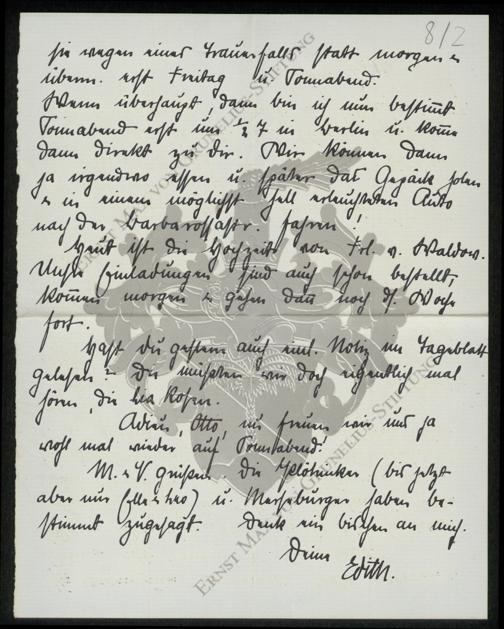 8/2
sie wegen eines Trauerfalls statt morgen u
überm. erst Freitag u. Sonnabend.
Wenn überhaupt, dann bin ich nun bestimmt
Sonnabend erst um ½ 7 in Berlin u. komme
dann direkt zu Dir. Wir können dann
ja irgendwo essen u. später das Gepäck holen
u in einem möglichst hell erleuchteten Auto
nach der Barbarossastr. fahren.
Heut ist die Hochzeit von Frl. v. Waldow.
Unsre Einladungen sind auch schon bestellt,
kommen morgen u gehen dann noch ds. Woche
fort.
Hast Du gestern auch die Notiz im Tageblatt
gelesen? Die müssten wir doch eigentlich mal
hören, die Rosen.
Adieu, Otto, wir freuen wir uns ja
wohl mal wieder auf Sonnabend.
M. u V. grüssen. Die
aber nur u. Merseburger haben be-
stimmt zugesagt. Denk ein bischen an mich.
Deine
Edith.
ERNST MAX VON GRUNELIUS-STIFTUNG
ERNST MAX VON GRUNELIUS-STIFTUNG